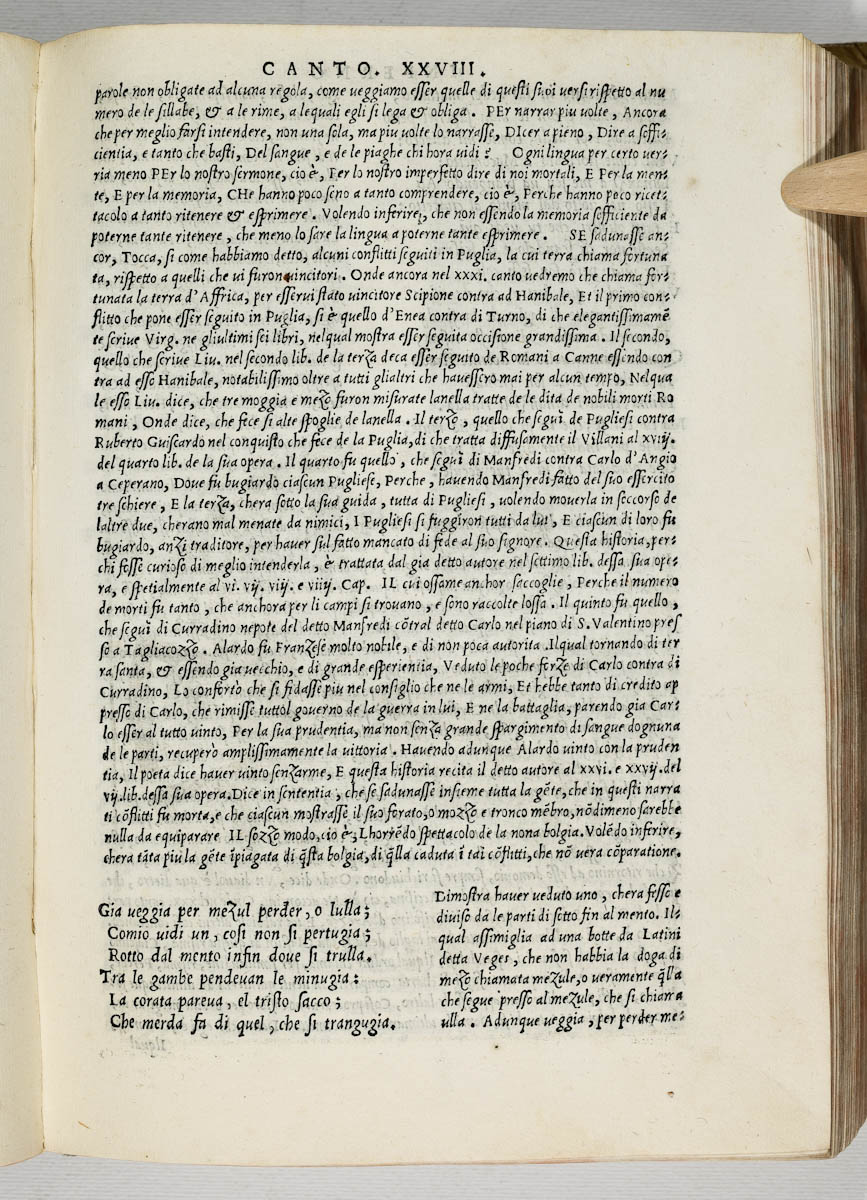 CANTO. XXVIII.
parole non obligate ad alcuna regola, come veggiamo esser quelle di questi suoi versi rispetto al nu
mero de le sillabe, & a le rime, a lequali egli si lega & obliga. PEr narrar piu volte, Ancora
che per meglio farsi intendere, non una sola, ma piu volte lo narrasse, DIcer a pieno, Dire a soffi-
cientia, e tanto che basti, Del sangue, e de le piaghe chi hora uidi? Ogni lingua per certo uer-
ria meno PEr lo nostro sermone, cio è, Per lo nostro imperfetto dire di noi mortali, E Per la men-
te, E per la memoria, CHe hanno poco seno a tanto comprendere, cio è, Perche hanno poco ricet-
tacolo a tanto ritenere & esprimere. Volendo inferire, che non essendo la memoria sofficiente da
poterne tante ritenere, che meno lo sare la lingua a poterne tante esprimere. SE sadunasse an-
cor, Tocca, si come habbiamo detto, alcuni conflitti seguiti in Puglia, la cui terra chiama fortuna
ta, rispetto a quelli che ui furon uincitori. Onde ancora nel xxxi. canto vedremo che chiama for-
tunata la terra d'Affrica, per esserui stato uincitore Scipione contra ad Hanibale, Et il primo con-
flitto che pone esser seguito in Puglia, si è quello d'Enea contra di Turno, di che elegantissimamē
te scriue Virg. ne gliultimi sei libri, nelqual mostra esser seguita occisione grandissima. Il secondo,
quello che scriue Liu. nel secondo lib. de la terza deca esser seguito de Romani a Canne essendo con
tra ad esso Hanibale, notabilissimo oltre a tutti glialtri che havessero mai per alcun tempo, Nelqua
le esso Liu. dice, che tre moggia e mezo furon misurate lanella tratte de le dita de nobili morti Ro
mani, Onde dice, che fece si alte spoglie de lanella. Il terzo, quello che seguì de Pugliesi contra
Ruberto Guiscardo nel conquisto che fece de la Puglia, di che tratta diffusamente il Villani al xviij.
del quarto lib. de la sua opera. Il quarto fu quello, che seguì di Manfredi contra Carlo d'Angio
a Ceperano, Doue fu bugiardo ciascun Pugliese, Perche, hauendo Manfredi fatto del suo essercito
tre schiere, E la terza, chera sotto la sua guida, tutta di Pugliesi, uolendo mouerla in soccorso de
laltre due, cherano mal menate da nimici, I Pugliesi si fuggiron tutti da lui, E ciascun di loro fu
bugiardo, anzi traditore, per hauer sul fatto mancato di fede al suo signore. Questa historia, per-
chi fosse curioso di meglio intenderla, è trattata dal gia detto autore nel settimo lib. dessa sua ope-
ra, e spetialmente al vi. vij. viij. e viiij. Cap. IL cui ossame anchor saccoglie, Perche il numero
de morti fu tanto, che anchora per li campi si trouano, e sono raccolte lossa. Il quinto fu quello,
che seguì di Curradino nepote del detto Manfredi cōtral detto Carlo nel piano di S. Valentino pres
so a Tagliacozzo. Alardo fu Franzese molto nobile, e di non poca autorita. Ilqual tornando di ter
ra santa, & essendo gia uecchio, e di grande esperientia, Veduto le poche forze di Carlo contra di
Curradino, Lo confortò che si fidasse piu nel consiglio che ne le armi, Et hebbe tanto di credito ap
presso di Carlo, che rimisse tuttol gouerno de la guerra in lui, E ne la battaglia, parendo gia Car-
lo esser al tutto uinto, Per la sua prudentia, ma non senza grande spargimento di sangue dognuna
de le parti, recuperò amplissimamente la uittoria. Hauendo adunque Alardo uinto con la pruden
tia, Il poeta dice hauer uinto senzarme, E questa historia recita il detto autore al xxvi. e xxvij. del
vij. lib. dessa sua opera. Dice in sententia, che se sadunasse insieme tutta la gēte, che in questi narra
ti cōflitti fu morta, e che ciascun mostrasse il suo forato, o mozzo e tronco mēbro, nōdimeno sarebbe
nulla da equiparare IL sozzo modo, cio è, Lhorrēdo spettacolo de la nona bolgia. Volēdo inferire,
chera tāta piu la gēte īpiagata di q̄sta bolgia, di q̄lla caduta ī tai cōflitti, che nō vera cōparatione.
Gia veggia per mezul perder, o lulla;
Comio uidi un, cosi non si pertugia;
Rotto dal mento infin doue si trulla.
Tra le gambe pendeuan le minugia:
La corata pareua, el tristo sacco;
Che merda fa di quel, che si trangugia.
Dimostra hauer veduto uno, chera fesso e
diuiso da le parti di sotto fin al mento. Il-
qual assimiglia ad una botte da Latini
detta Veges, che non habbia la doga di
mezo chiamata mezule, o ueramente q̄lla
che segue presso al mezule, che si chiama
ulla. Adunque ueggia, per perder me-